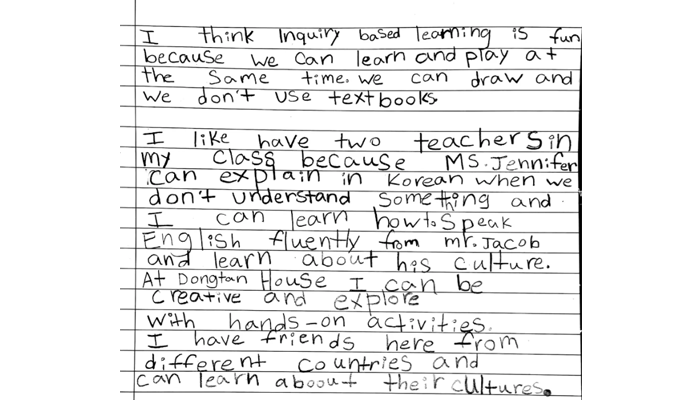 I think Inquiry based learning is fun
because we can learn and play at
the same time. we can draw and
we don't use textbooks
I like have two teachers in
my class because Ms. Jennifer
can explain in Korean when we
don't understand something and
I can learn how to speak
English fluently from mr. Jacob
and learn about his culture.
At Dongtan House I can be
creative and explore
with hands-on activities.
I have friends here from
different countries and
can learn aboout their cultures.